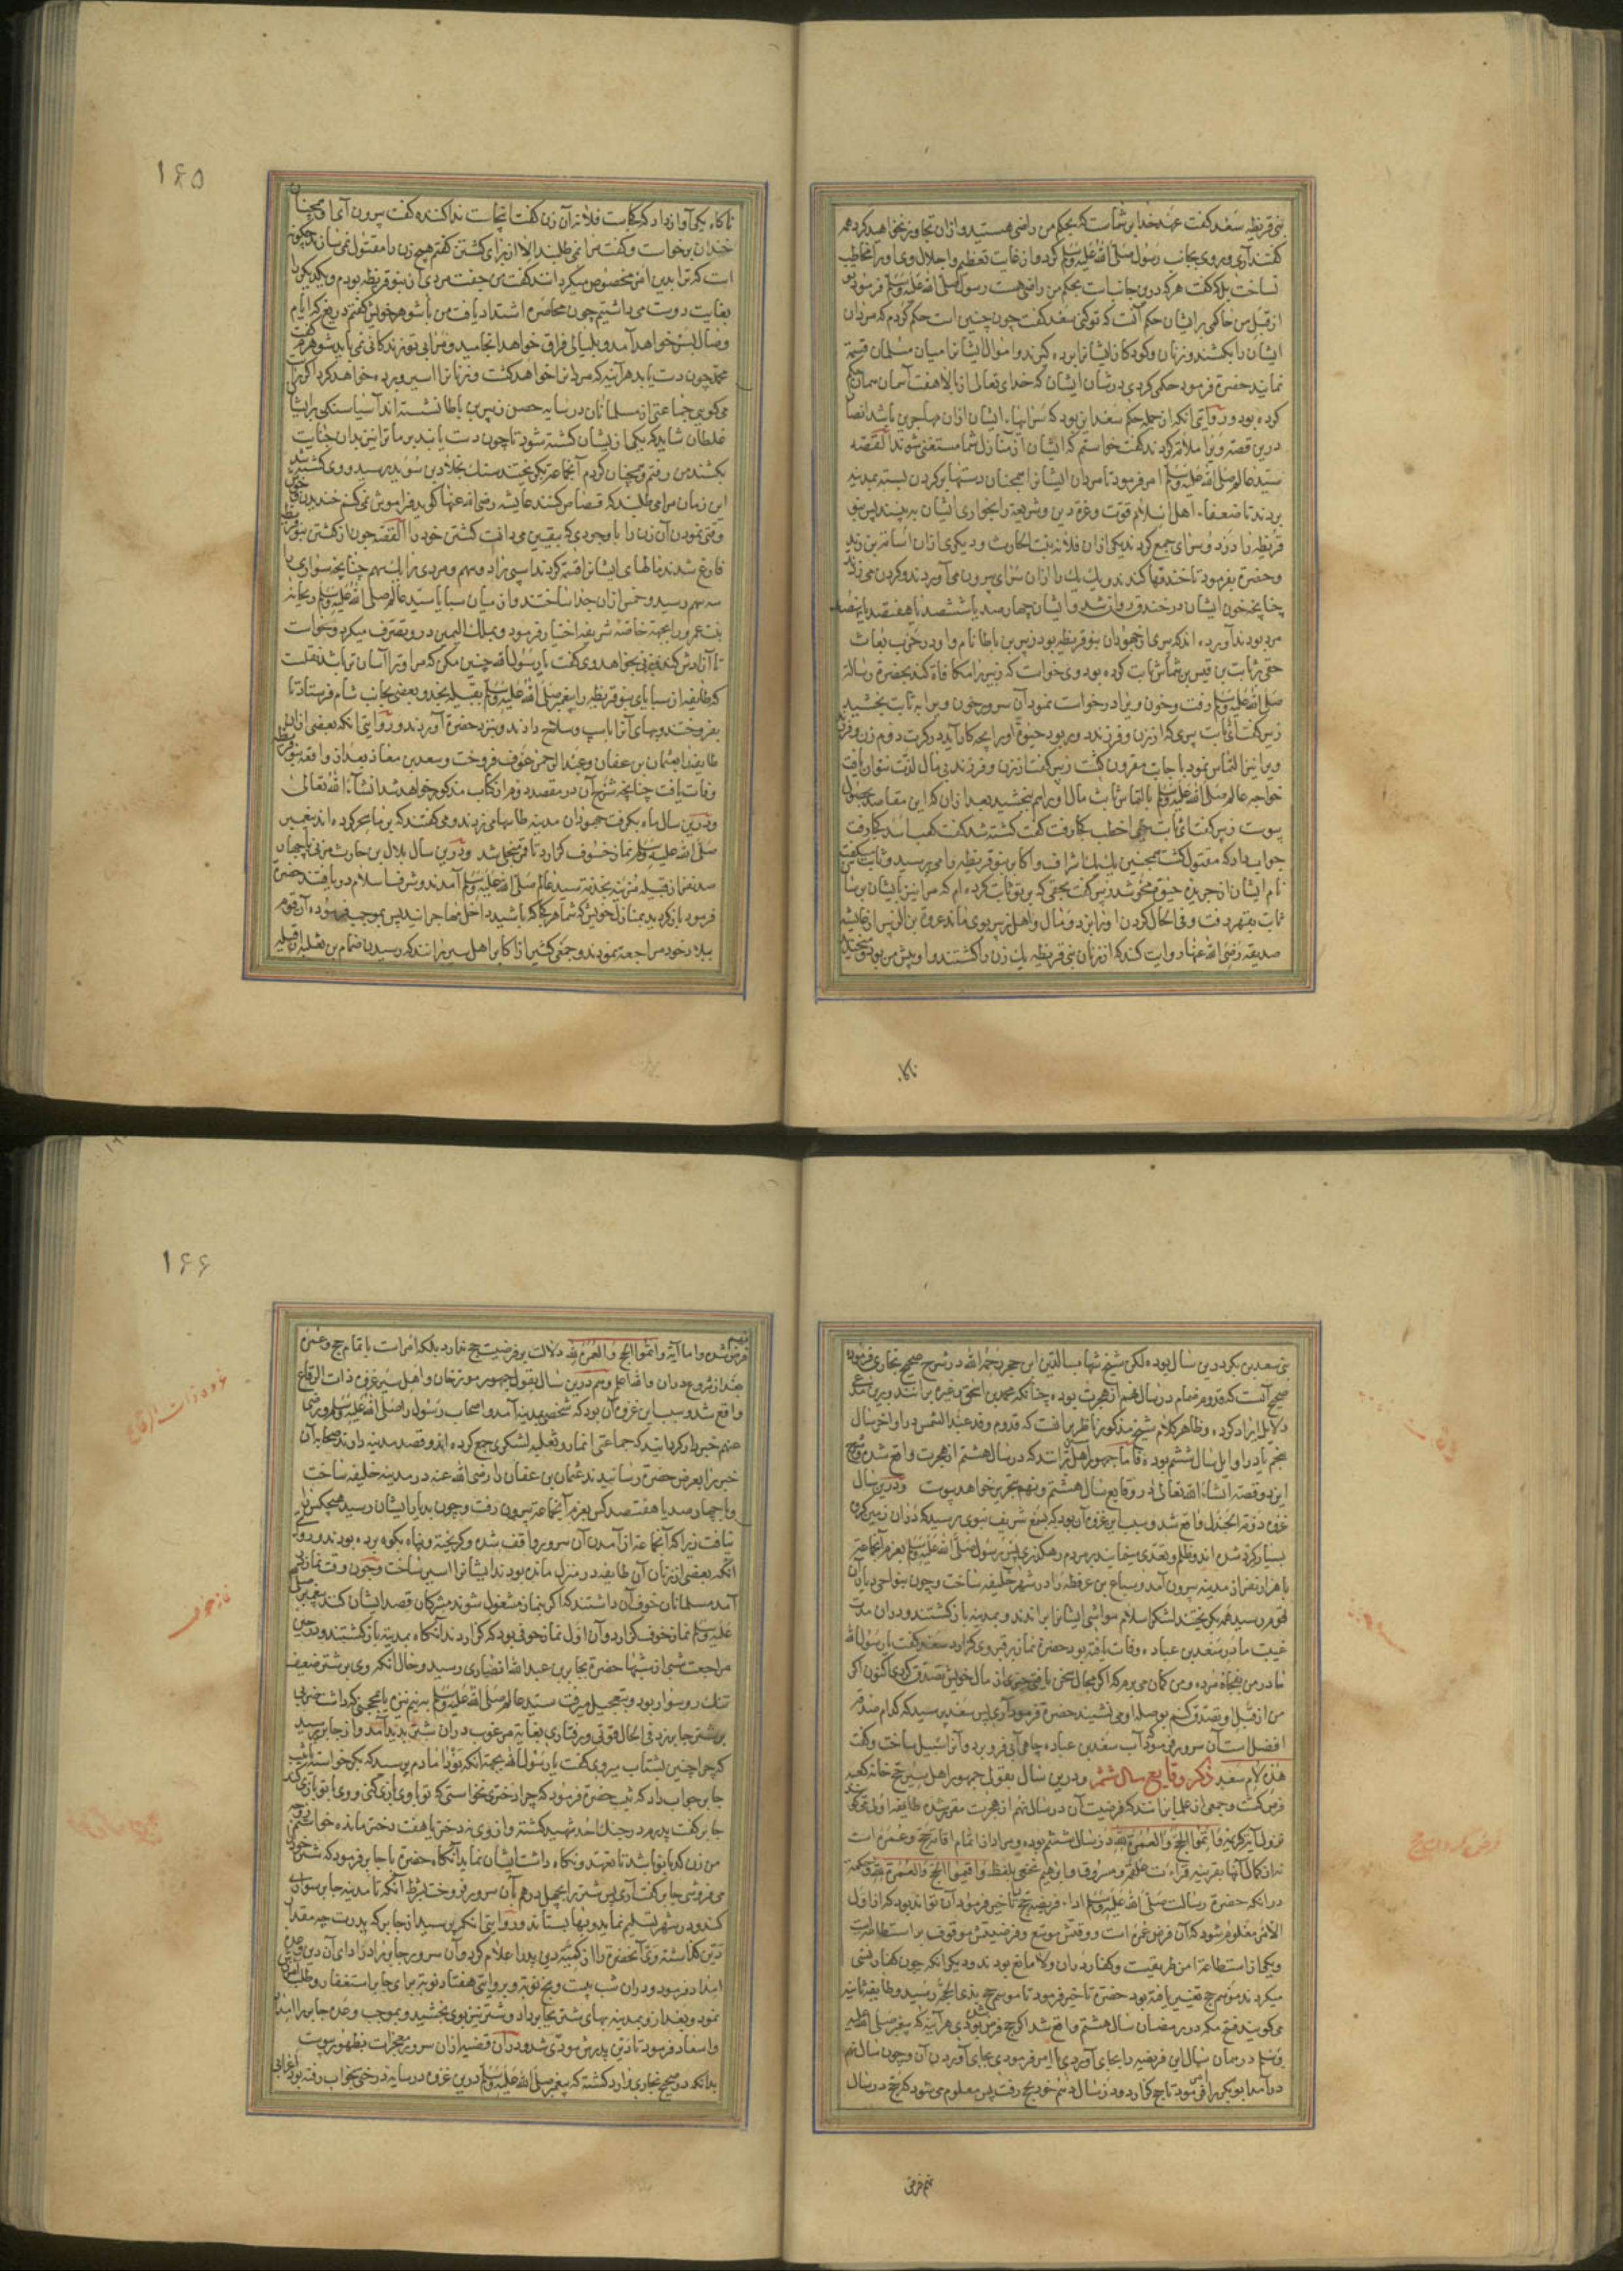 بنی قریظه سعد گفت عهد خدا بر شماست که بحکم من راضی هستید و ازان تجاوز نخواهید کرد همه
گفتند آری و روی بجانب رسول صلی الله علیه وسلم کرد و از غایت تعظیم و اجلال وی او را مخاطب
نساخت بلکه گفت هر که درین جانب است بحکم من راضی هست رسول صلی الله علیه وسلم فرمود
از قبل من حاکمی بر ایشان حکم آنست که تو کنی سعد گفت چون چنین است حکم کردم که مردان
ایشان را بکشند و زنان و کودکان ایشانرا برده گیرند و اموال ایشانرا میان مسلمانان قسمة
نمایند حضرة فرمود حکمی کردی در شان ایشان که خدای تعالی از بالاء هفت آسمان
کرده بود و در روایتی آنکه از جمله حکم سعد این بود که سراهاء ایشان ازان مهاجرین باشد انصار
درین قصه ویرا ملامة کردند گفت خواستم که ایشان از منازل شما مستغنی شوند القصه
سید عالم صلی الله علیه وسلم امر فرمود تا مردان ایشانرا همچنان دستها بر گردن بسته بمدینه
بردند تا ضعفاء اهل اسلام قوت و عزة دین و شریعة و خواری ایشان به بینند پس بنو
قریظه را در دو سرای جمع کردند یکی ازان فلانه بنت الحارث و دیگری ازان اسامة بن زید
و حضرة بفرمود تا خندقها کندند و یک یک را ازان سرای بیرون می آوردند و گردن می زدند
چنانچه خون ایشان در خندق روان شد و ایشان چهار صد یا ششصد یا هفتصد یا نهصد
مرد بودند آورده اند که مردی از جهودان بنو قریظه بود زبیر بن باطا نام و او در حرب بعاث
حقی بر ثابت بن قیس بن شماس ثابت کرده بود وی خواست که زبیر را مکافاة کند بحضرة رسالة
صلی الله علیه وسلم رفت و خون ویرا درخواست نمود آن سرور خون ویرا به ثابت بخشید
زبیر گفت ای ثابت پیری که از زن و فرزند دور بود حیوة او را بچه کار آید در کرت دوم زن و فرزند
ویرا نیز التماس نمود باجابت مقرون گشت زبیر گفت از زن و فرزند بی مال لذت نتوان یافت
خواجه عالم صلی الله علیه وسلم بالتماس ثابت مال او را هم ببخشید بعد ازان که این مقاصد بحصول
پیوست زبیر گفت ای ثابت حیی اخطب کجا رفت گفت کشته شد گفت کعب اسد کجا رفت
جواب داد که مقتول گشت همچنین یک یک اشراف و اکابر بنو قریظه را می پرسید و ثابت میگفت
نام ایشان از جریده حیوة محو شد زبیر گفت بحقی که بر تو ثابت کرده ام که مرا نیز بایشان برسان
ثابت بقهر رفت و فی الحال گردن او را بزد و مال و اهل زبیر بوی ماند عروة بن الزبیر از عایشه
صدیقه رضی الله عنها روایت کند که از زنان بنی قریظه یک زن را کشتند و او پیش من بود و میخندید
ناگاه
۱۶۵
ناگاه یکی آواز داد که کجاست فلانه آن زن گفت اینجاست ندا کننده گفت بیرون آی او همچنان
خندان برخواست و گفت مرا نمی طلبند الا از برای کشتن گفتم هیچ زن را مقتول نمی سازند چگونه
است که ترا بدین امر مخصوص میکردانند گفت من جفت مردی از بنو قریظه بودم و یکدیگر را
بغایت دوست می داشتیم چون محاصره اشتداد یافت من با شوهر خویش گفتم دریغ که ایام
وصال بسر خواهد آمد و بلیالی فراق خواهد انجامید و مرا بی تو زندگانی نمی باید شوهرم گفت
محمد چون دست یابد هر آینه که مردانرا خواهد کشت و زنانرا اسیر و برده خواهد کرد اگر راست
می گویی جماعتی از مسلمانان در سایه حصن زبیر بن باطا نشسته اند آسیا سنگی بر ایشان
غلطان شاید که یکی از ایشان کشته شود تا چون دست یابند بر ما ترا نیز بدان جنایت
بکشند من رفتم و همچنان کردم آنجماعة بگریختند سنگ بخلاد بن سوید رسید و وی کشته شد
این زمان مرا می طلبند که قصاص کنند عایشه رضی الله عنها گوید فراموش نمی کنم خندیدن و خوش
وقتی نمودن آن زن را با وجودی که بیقین می دانست کشتن خود را القصه چون از کشتن بنو قریظه
فارغ شدند مالهای ایشانرا قسمة کردند اسپی را دو سهم و مردی را یک سهم چنانچه سواری را
سه سهم رسید و خمس ازان جدا ساختند و از میان سبایا سید عالم صلی الله علیه وسلم ریحانه
بنت عمرو را بجهة خاصه شریفه اختیار فرمود و بملک الیمین در وی تصرف میکرد و میخواست
تا آزادش کند بزنی بخواهد وی گفت یا رسول الله چنین مکن که مرا و ترا آسان تر باشد نقلست
که طایفه از سبایای بنو قریظه را پیغمبر صلی الله علیه وسلم بقبیله نجد و بعضی بجانب شام فرستاد تا
بفروختند و بهای آنرا باسپ و سلاح دادند و بنزد حضرة آوردند و در روایتی آنکه بعضی ازان
طایفه را عثمان بن عفان و عبد الرحمن عوف فروخت و سعد بن معاذ بعد از واقعه بنو قریظه
وفات یافت چنانچه شرح آن در مقصد دوم از کتاب مذکور خواهد شد انشاء الله تعالی
و درین سال ماه بگرفت جهودان مدینه طاسها می زدند و می گفتند که بر ما سحر کرده اند پیغمبر
صلی الله علیه وسلم نماز خسوف گزارد تا قمر منجلی شد و درین سال بلال بن حارث مزنی با چهار
صد نفر از قبیله مزینه بخدمة سید عالم صلی الله علیه وسلم آمدند و شرف اسلام دریافتند حضرة
فرمود باز گردید بمنازل خویش که شما هر کجا که باشید داخل مهاجرانید پس بموجب فرموده آن قوم
ببلاد خود مراجعة نمودند و جمعی کثیر از اکابر اهل سیر برانند که رسیدن ضمام بن ثعلبه از قبیله
بنی سعد بن بکر درین سال بوده لکن شیخ شهاب الدین ابن حجر رحمه الله در شرح صحیح بخاری فرموده
صحیح آنست که قدوم ضمام در سال نهم از هجرت بوده چنانکه محمد بن اسحق و غیره برانند و برین مدعی
دلایل ایراد کرده و ظاهر کلام شیخ مذکور ناظر بآنست که قدوم وفد عبد القیس در اواخر سال
پنجم یا در اوایل سال ششم بوده و اما جمهور اهل سیر آنست که در سال هشتم از هجرت واقع شده و شرح
این دو قصه انشاء الله تعالی در وقایع سال هشتم و نهم بتحریر خواهد پیوست و درین سال
غزوه دومة الجندل واقع شد و سبب این غزوه آن بود که بسمع شریف نبوی رسید که دران زمین گروهی
بسیار گرد شده اند و ظلم و تعدی مینمایند بر مردم رهگذری پس رسول صلی الله علیه وسلم بعزم آنجماعة
با هزار نفر از مدینه بیرون آمد و سباع بن عرفطه را در شهر خلیفه ساخت و چون بنواحی دیار آن
قوم رسید همه بگریختند لشکر اسلام مواشی ایشانرا براندند و بمدینه باز گشتند و دران مدت
غیبت مادر سعد بن عباده وفات یافته بود حضرة نماز بر قبر وی گزارد سعد گفت یا رسول الله
مادر من بفجاة مرده و من گمان می برم که اگر مجال سخن یافتی چیزی از مال خویش تصدق کردی اکنون اگر
من از قبل او تصدق کنم بوصله او می نشیند حضرة فرمود آری پس سعد پرسید که کدام صدقه
افضل است آن سرور فرمود آب سعد بن عباده چاهی آبی فرو برد و آنرا سبیل ساخت و گفت
هذه لام سعد ذکر وقایع سال ششم و درین سال بقول جمهور اهل سیر حج خانه کعبه
فرض گشت و جمعی از علما برانند که فرضیت آن در سال نهم از هجرت مقرر شده طایفه اولی گویند که
نزول آیه کریمه و اتموا الحج و العمرة لله در سال ششم بوده و مراد از اتمام اقامة حج و عمره است
نه از کمال آنها بقرینه قراءت علقمه و مسروق و ابراهیم نخعی بلفظ و اقیموا الحج و العمرة لله و حکمة
درانکه حضرة رسالت صلی الله علیه وسلم اداء فریضه حج تاخیر فرمود آن تواند بود که از اول
الامر معلوم شود که آن فرض عمر است و وقتش موسع و فرضیتش موقوف بر استطاعة است
و یکی از استطاعة امن طریقست و کفار دران ولا مانع بودند و دیگر آنکه چون کفار نسی
میکردند موسم حج تغییر یافته بود حضرة تاخیر فرمود تا موسم حج بذی الحجه رسید و طایفه ثانیه
می گویند فتح مکه در رمضان سال هشتم واقع شد اگر حج فرض بودی هر آینه که پیغمبر صلی الله علیه
وسلم در همان سال این فریضه را بجای آوردی یا امر فرمودی بجای آوردن آن و چون سال نهم
درآمد ابوبکر را امر فرمود تا حج گزارد و در سال دهم خود بحج رفت پس معلوم می شود که حج در سال
نهم فرض
۱۶۶
نهم
فرض شده و اما آیة و اتموا الحج و العمرة لله دلالت بر فرضیت حج ندارد بلکه امر است باتمام حج و عمره
بعد از شروع دران والله اعلم و هم درین سال بقول جمهور مورخان و اهل سیر غزوه ذات الرقاع
واقع شد و سبب این غزوه آن بود که شخصی بمدینه آمد و اصحاب رسول را صلی الله علیه وسلم و رضی
عنهم خبردار گردانید که جماعتی انمار و ثعلبه لشکری جمع کرده اند و قصد مدینه دارند صحابه آن
خبر را بعرض حضرة رسانیدند عثمان بن عفان را رضی الله عنه در مدینه خلیفه ساخت
و با چهار صد یا هفتصد کس بعزم آنجماعة بیرون رفت و چون بدیار ایشان رسید هیچکس را
نیافت زیرا که آنجماعة از آمدن آن سرور واقف شده و گریخته و پناه بکوه برده بودند و در روایتی
آنکه بعضی از زنان آن طایفه در منزل مانده بودند ایشانرا اسیر ساخت و چون وقت نماز
آمد مسلمانان خوف آن داشتند که اگر بنماز مشغول شوند مشرکان قصد ایشان کنند پیغمبر صلی الله
علیه وسلم نماز خوف گزارد و آن اول نماز خوفی بود که گزاردند آنگاه بمدینه باز گشتند و در حین
مراجعت شبی از شبها حضرة بجابر بن عبد الله انصاری رسید و حال آنکه وی بر شتر ضعیف
تنک رو سوار بود و بتعجیل میرفت سید عالم صلی الله علیه وسلم به نیم نیزه یا بمحجنی که داشت ضربی
بر شتر جابر زد فی الحال قوتی و رفتاری بغایة مرغوب دران شتر پدید آمد و از جابر پرسید
که چرا چنین بشتاب میروی گفت یا رسول الله بجهة آنکه نو دامادم پرسید که بکر خواسته یا ثیب
جابر جواب داد که ثیب حضرة فرمود که چرا دختری نخواستی که تو با وی بازی کنی و وی با تو بازی کند
جابر گفت پدرم در جنگ احد شهید گشته و از وی نه دختر یا هفت دختر مانده خواستم
من زن کدبانو باشد تا تعهد و نگاه داشت ایشان نماید آنگاه حضرة با جابر فرمود که شتر خود
می فروشی جابر گفت آری پس شتر را بچهل درهم بآن سرور فروخت بشرط آنکه تا مدینه جابر سواری
کند و در شهر تسلیم نماید و بها بستاند و در روایتی آنکه پرسید از جابر که پدرت چه مقدار
دین گذاشته وی آنحضرة را از کمیة دین پدر اعلام کرد و آن سرور جابر را در ادای آن دین وعده
امداد فرمود و دران شب بیست و پنج نوبة و بروایتی هفتاد نوبة برای جابر استغفار و طلب آمرزش
نمود و بعد از ورود بمدینه بهای شتر بجابر داد و شتر نیز بوی بخشید و بموجب وعده جابر را امداد
و اسعاد فرمود تا دین پدرش مودی شد و دران قضیه ازان سرور معجزات بظهور پیوست
بدانکه در صحیح بخاری وارد گشته که پیغمبر صلی الله علیه وسلم درین غزوه در سایه درختی بخواب رفته بود اعرابی
غزوه ذات الرقاع
نماز خوف